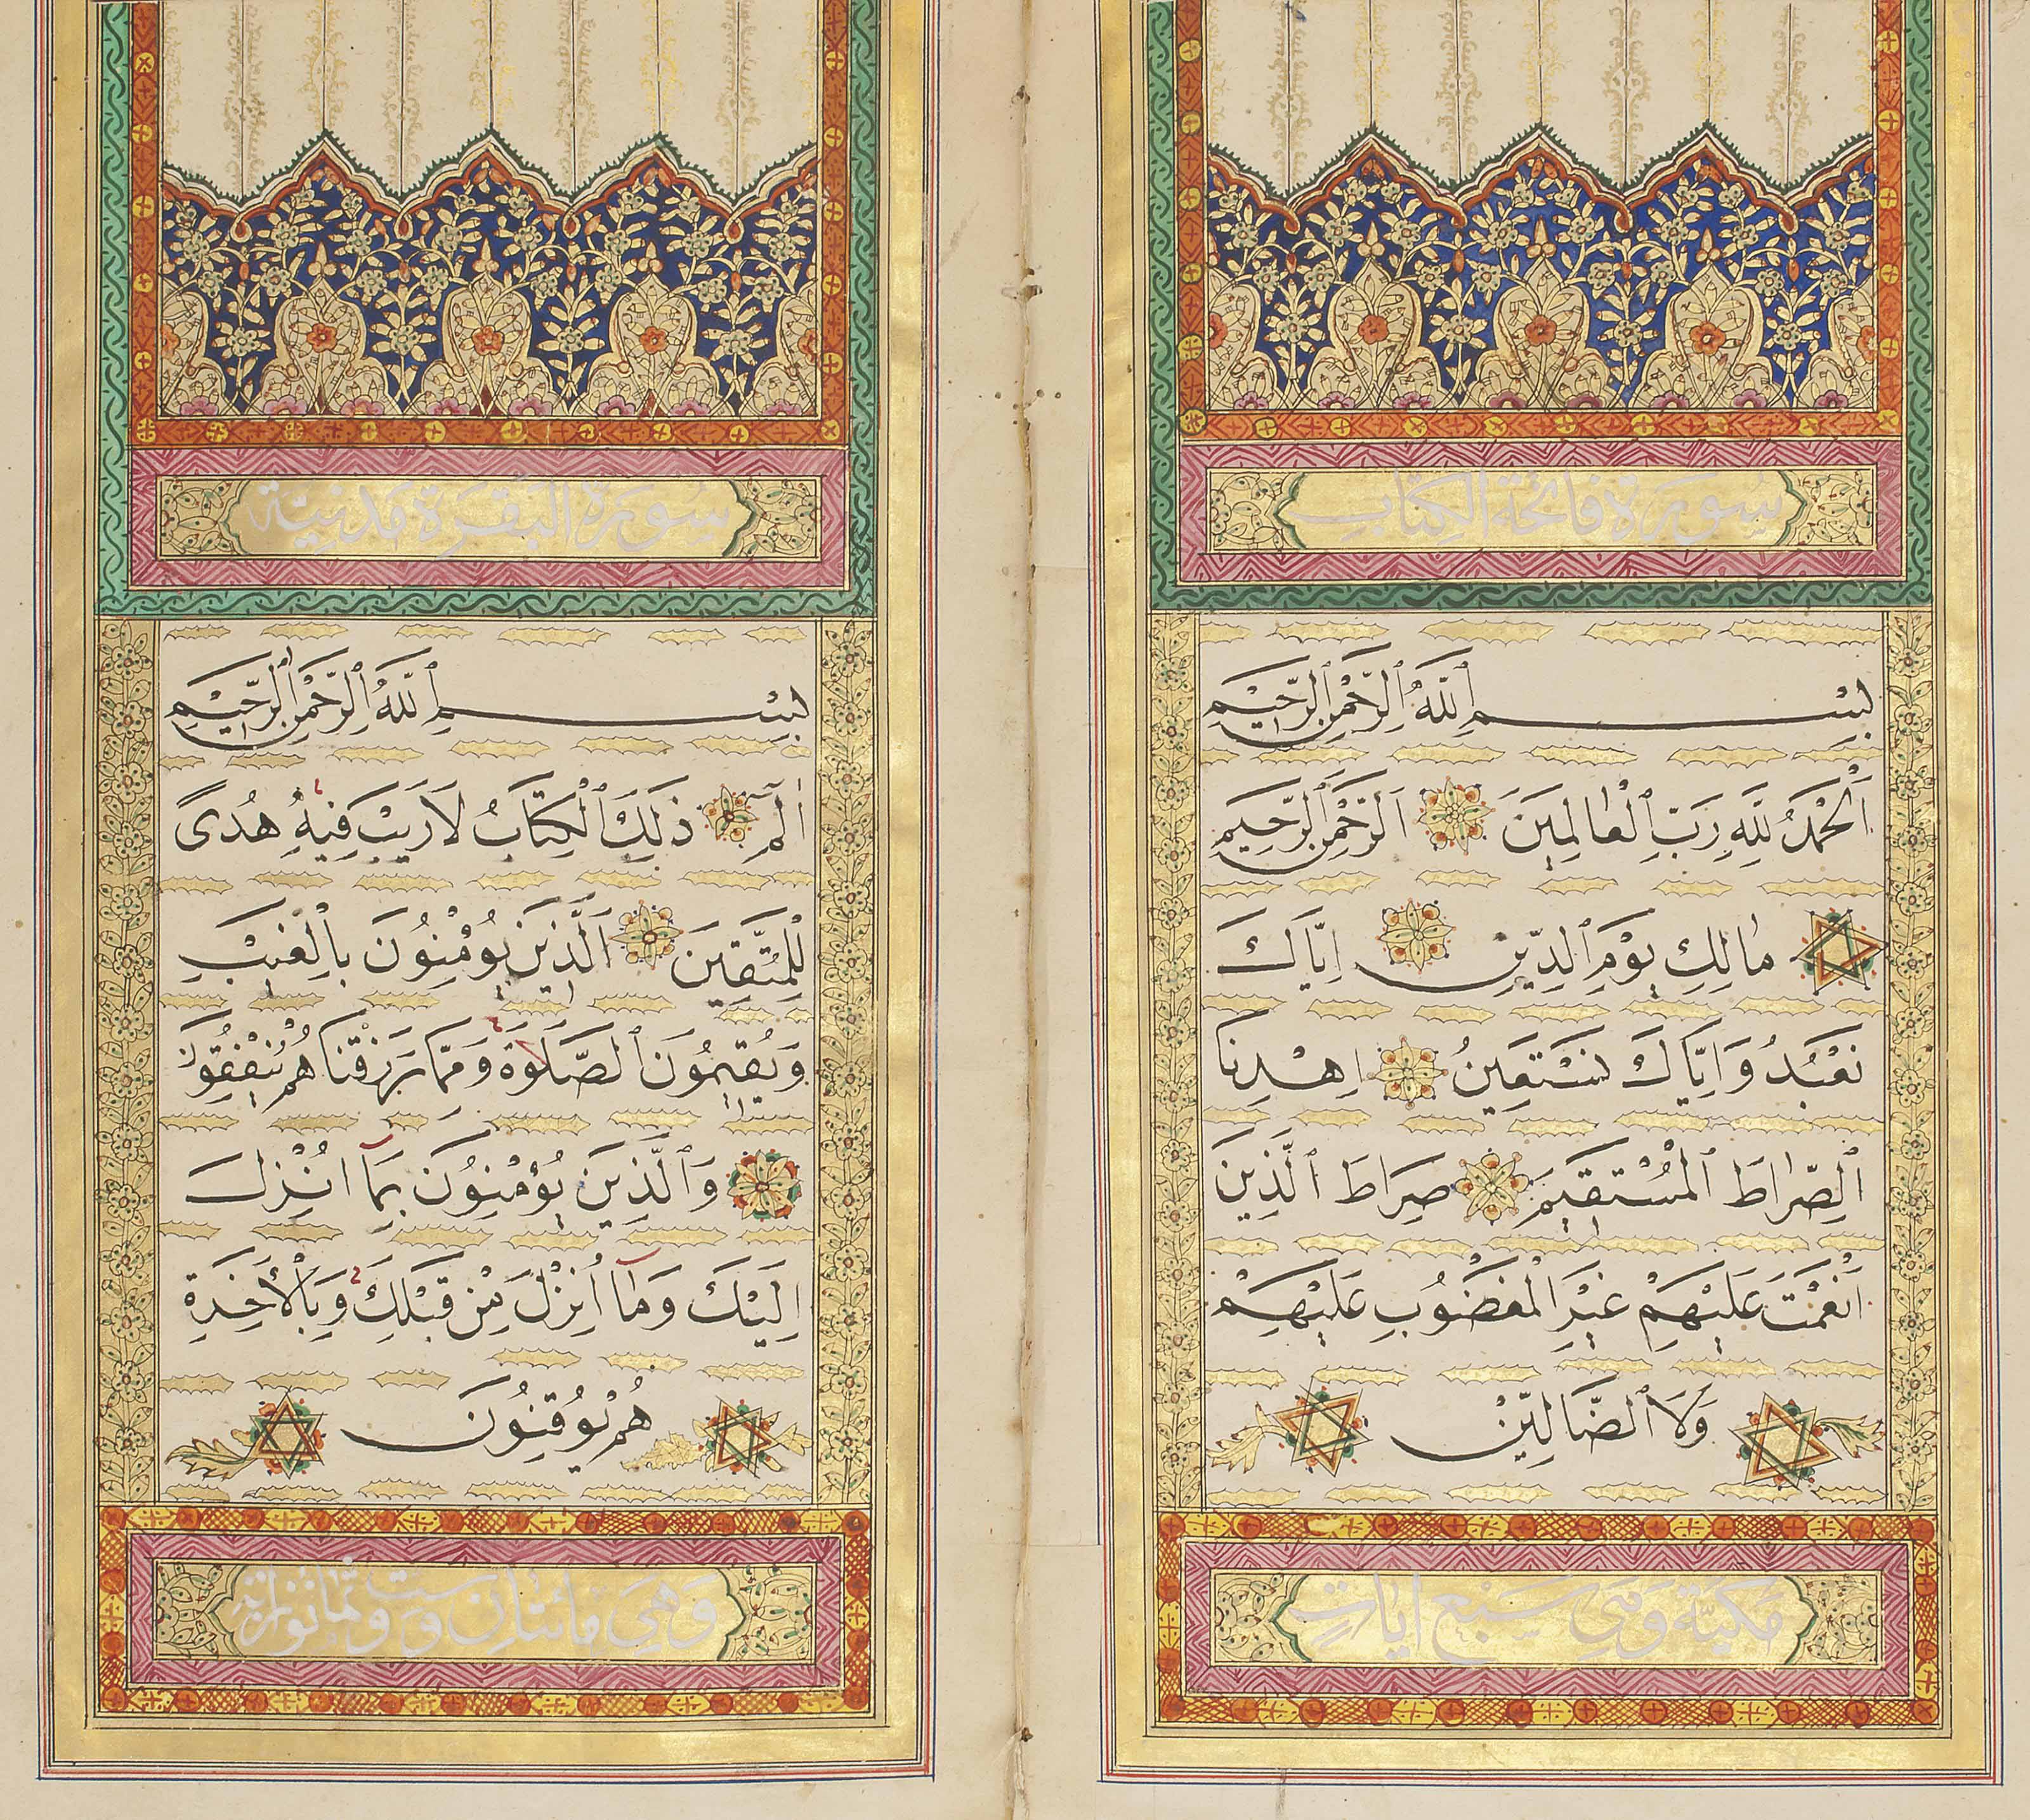 سورة فاتحة الكتاب
بِسْمِ ٱللَّهِ ٱلرَّحْمٰنِ ٱلرَّحِيمِ
اَلْحَمْدُ لِلَّهِ رَبِّ ٱلْعَالَمِينَ اَلرَّحْمٰنِ ٱلرَّحِيمِ
مَالِكِ يَوْمِ ٱلدِّينِ اِيَّاكَ
نَعْبُدُ وَاِيَّاكَ نَسْتَعِينُ اِهْدِنَا
ٱلصِّرَاطَ ٱلْمُسْتَقِيمَ صِرَاطَ ٱلَّذِينَ
اَنْعَمْتَ عَلَيْهِمْ غَيْرِ الْمَغْضُوبِ عَلَيْهِمْ
وَلَا ٱلضَّالِّينَ
مكيّة وهي سبع ايات
سورة البقرة مدنيّة
بِسْمِ ٱللَّهِ ٱلرَّحْمٰنِ ٱلرَّحِيمِ
الٓمٓ ذٰلِكَ ٱلْكِتَابُ لَا رَيْبَ فِيهِ هُدًى
لِلْمُتَّقِينَ اَلَّذِينَ يُؤْمِنُونَ بِالْغَيْبِ
وَيُقِيمُونَ ٱلصَّلٰوةَ وَمِمَّا رَزَقْنَاهُمْ يُنْفِقُونَ
وَٱلَّذِينَ يُؤْمِنُونَ بِمَآ اُنْزِلَ
اِلَيْكَ وَمَآ اُنْزِلَ مِنْ قَبْلِكَ وَبِالْاٰخِرَةِ
هُمْ يُوقِنُونَ
وهي مائتان وست وثمانون اية